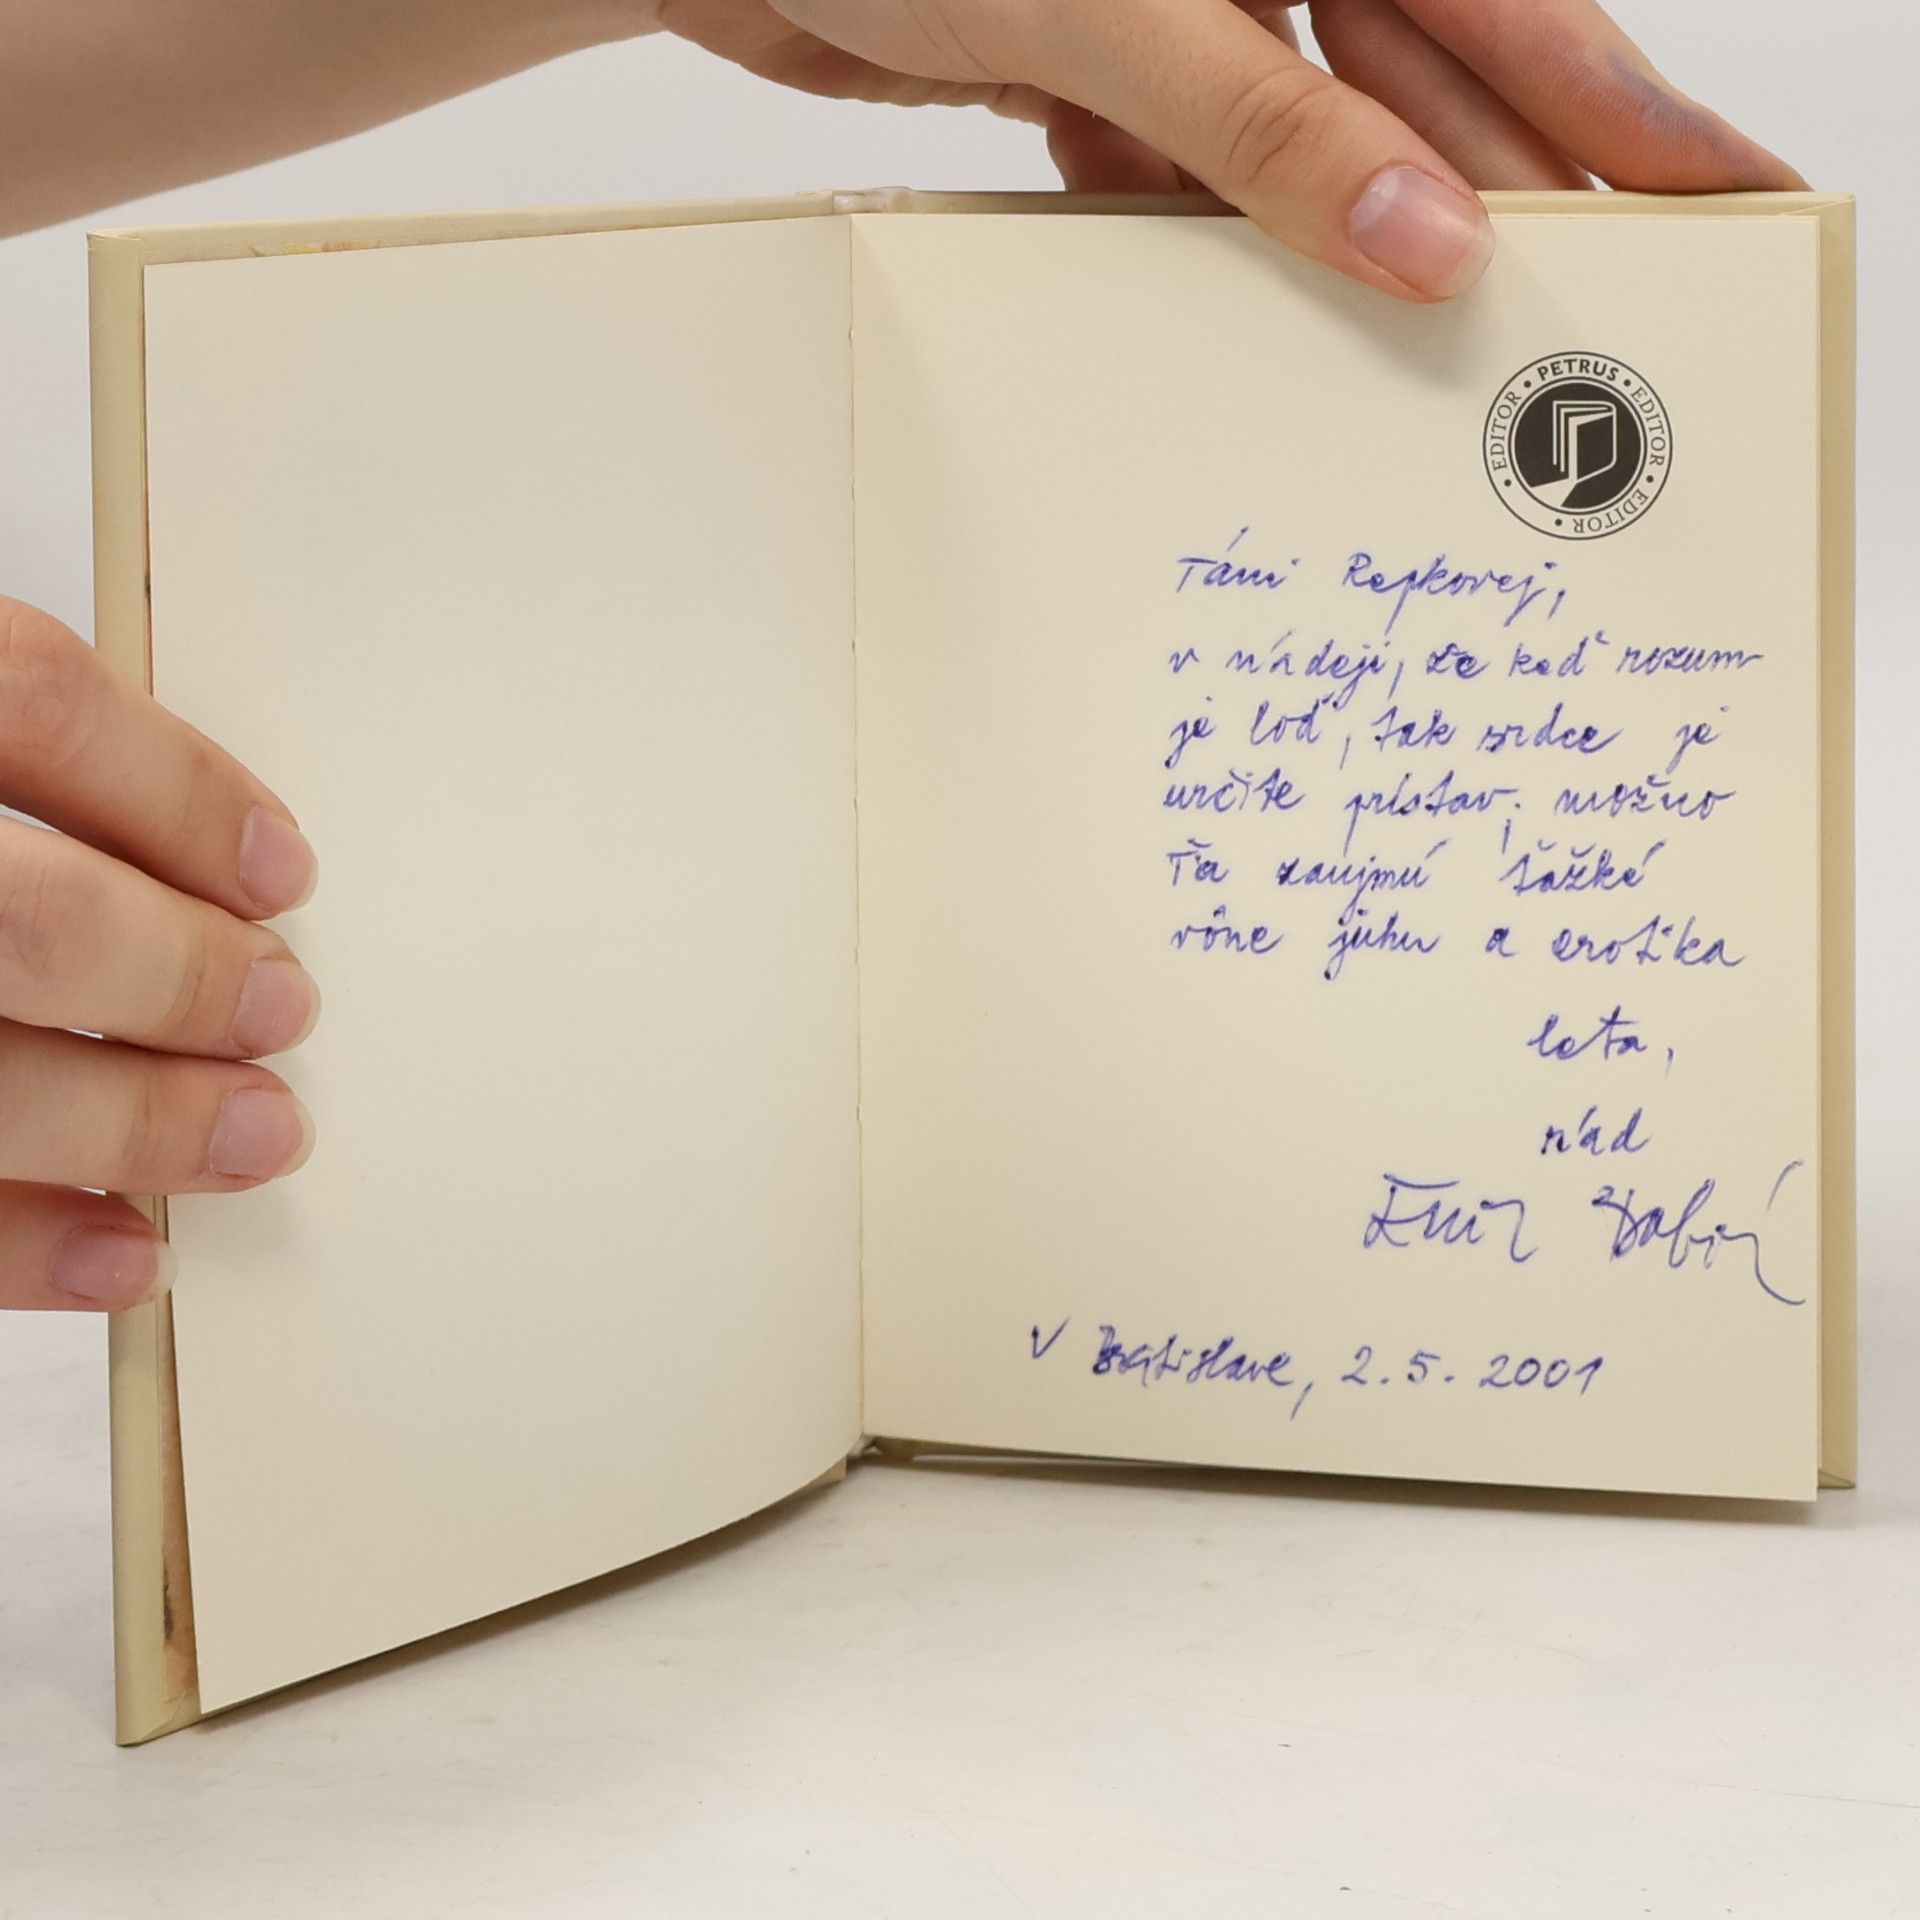 PETRUS • EDITOR • EDITOR • EDITOR •
Táni Repkovej,
v nádeji, že keď rozum
je loď, tak srdce je
určite prístav; možno
Ťa zaujmú ťažké
vône juhu a erotika
leta,
rád
V Bratislave, 2.5.2001